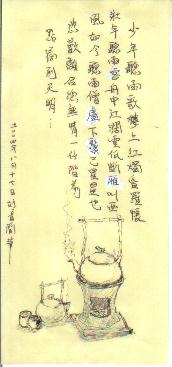 少年聽雨歌樓上紅燭昏羅帳
壯年聽雨客舟中江濶雲低斷雁叫西
風如今聽雨僧廬下鬢已星星也
悲歡離合總無情一任階前
點滴到天明…
二〇〇四年八月十七日